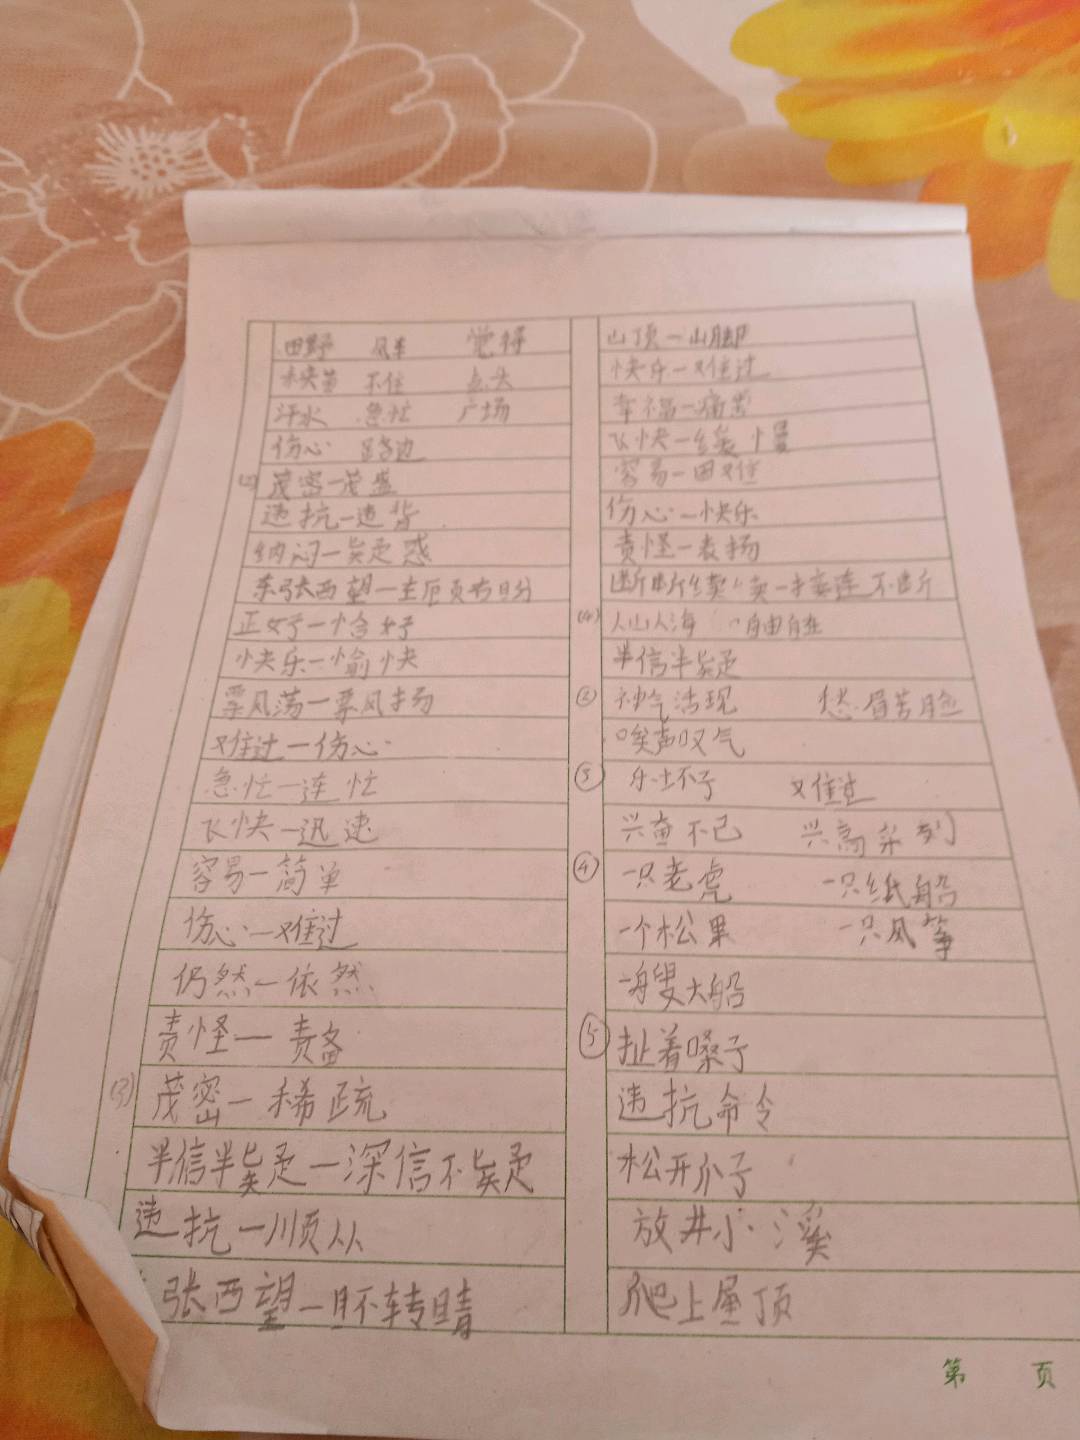 田野 风车 觉得
秧苗 不住 点头
汗水 急忙 广场
伤心 路边
(2) 茂密—茂盛
违抗—违背
纳闷—疑惑
东张西望—左顾右盼
正好—恰好
快乐—愉快
飘荡—飘扬
难过—伤心
急忙—连忙
飞快—迅速
容易—简单
伤心—难过
仍然—依然
责怪—责备
(3) 茂密—稀疏
半信半疑—深信不疑
违抗—顺从
张西望—目不转睛
山顶—山脚
快乐—难过
幸福—痛苦
飞快—缓慢
容易—困难
伤心—快乐
责怪—表扬
断断续续—接连不断
(4) 人山人海 自由自在
半信半疑
② 神气活现 愁眉苦脸
唉声叹气
③ 乐坏了 难过
兴奋不已 兴高采烈
④ 一只老虎 一只纸船
一个松果 一只风筝
一艘大船
⑤ 扯着嗓子
违抗命令
松开爪子
放进小溪
爬上屋顶
第 页